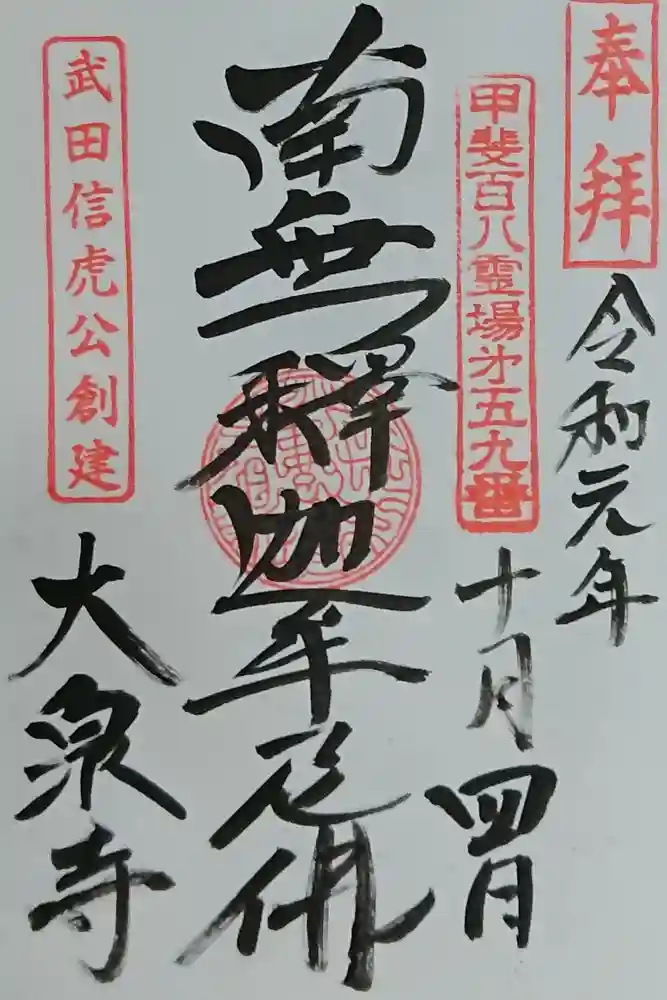 奉拝
令和元年
甲斐百八霊場第五九番
十月四日
南無釋迦牟尼佛
武田信虎公創建
大泉寺